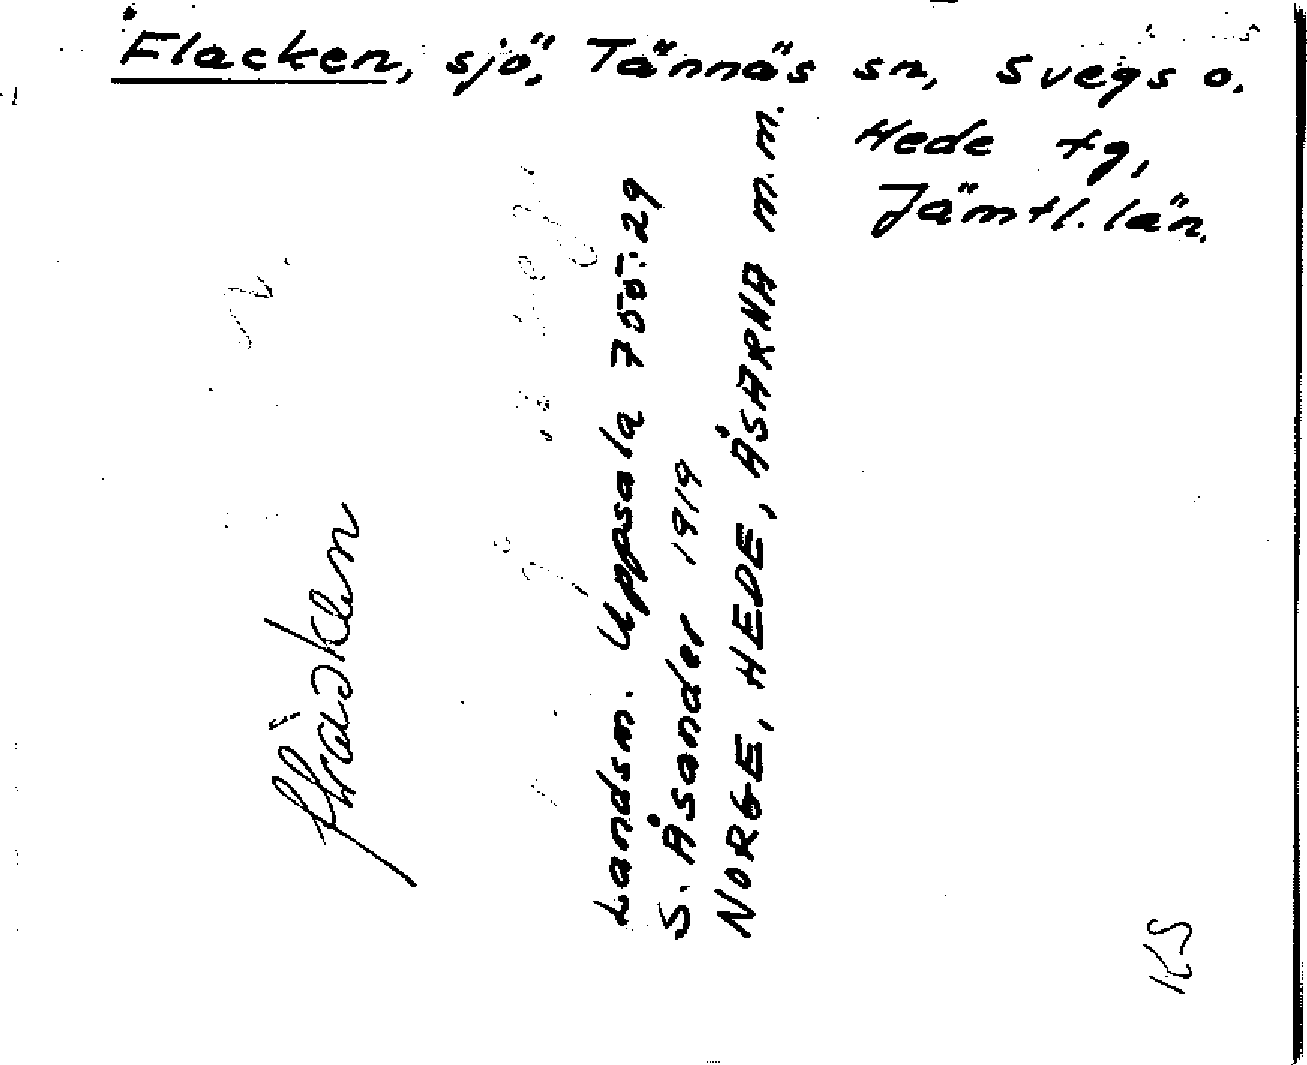 Flacken, sjö, Tännäs sn, Svegs o.
Hede tg,
Jämtl. län.
Landsm. Uppsala 755:29
S. Åsander 1919
NORGE, HEDE, ÅSARNA m.m.
KS